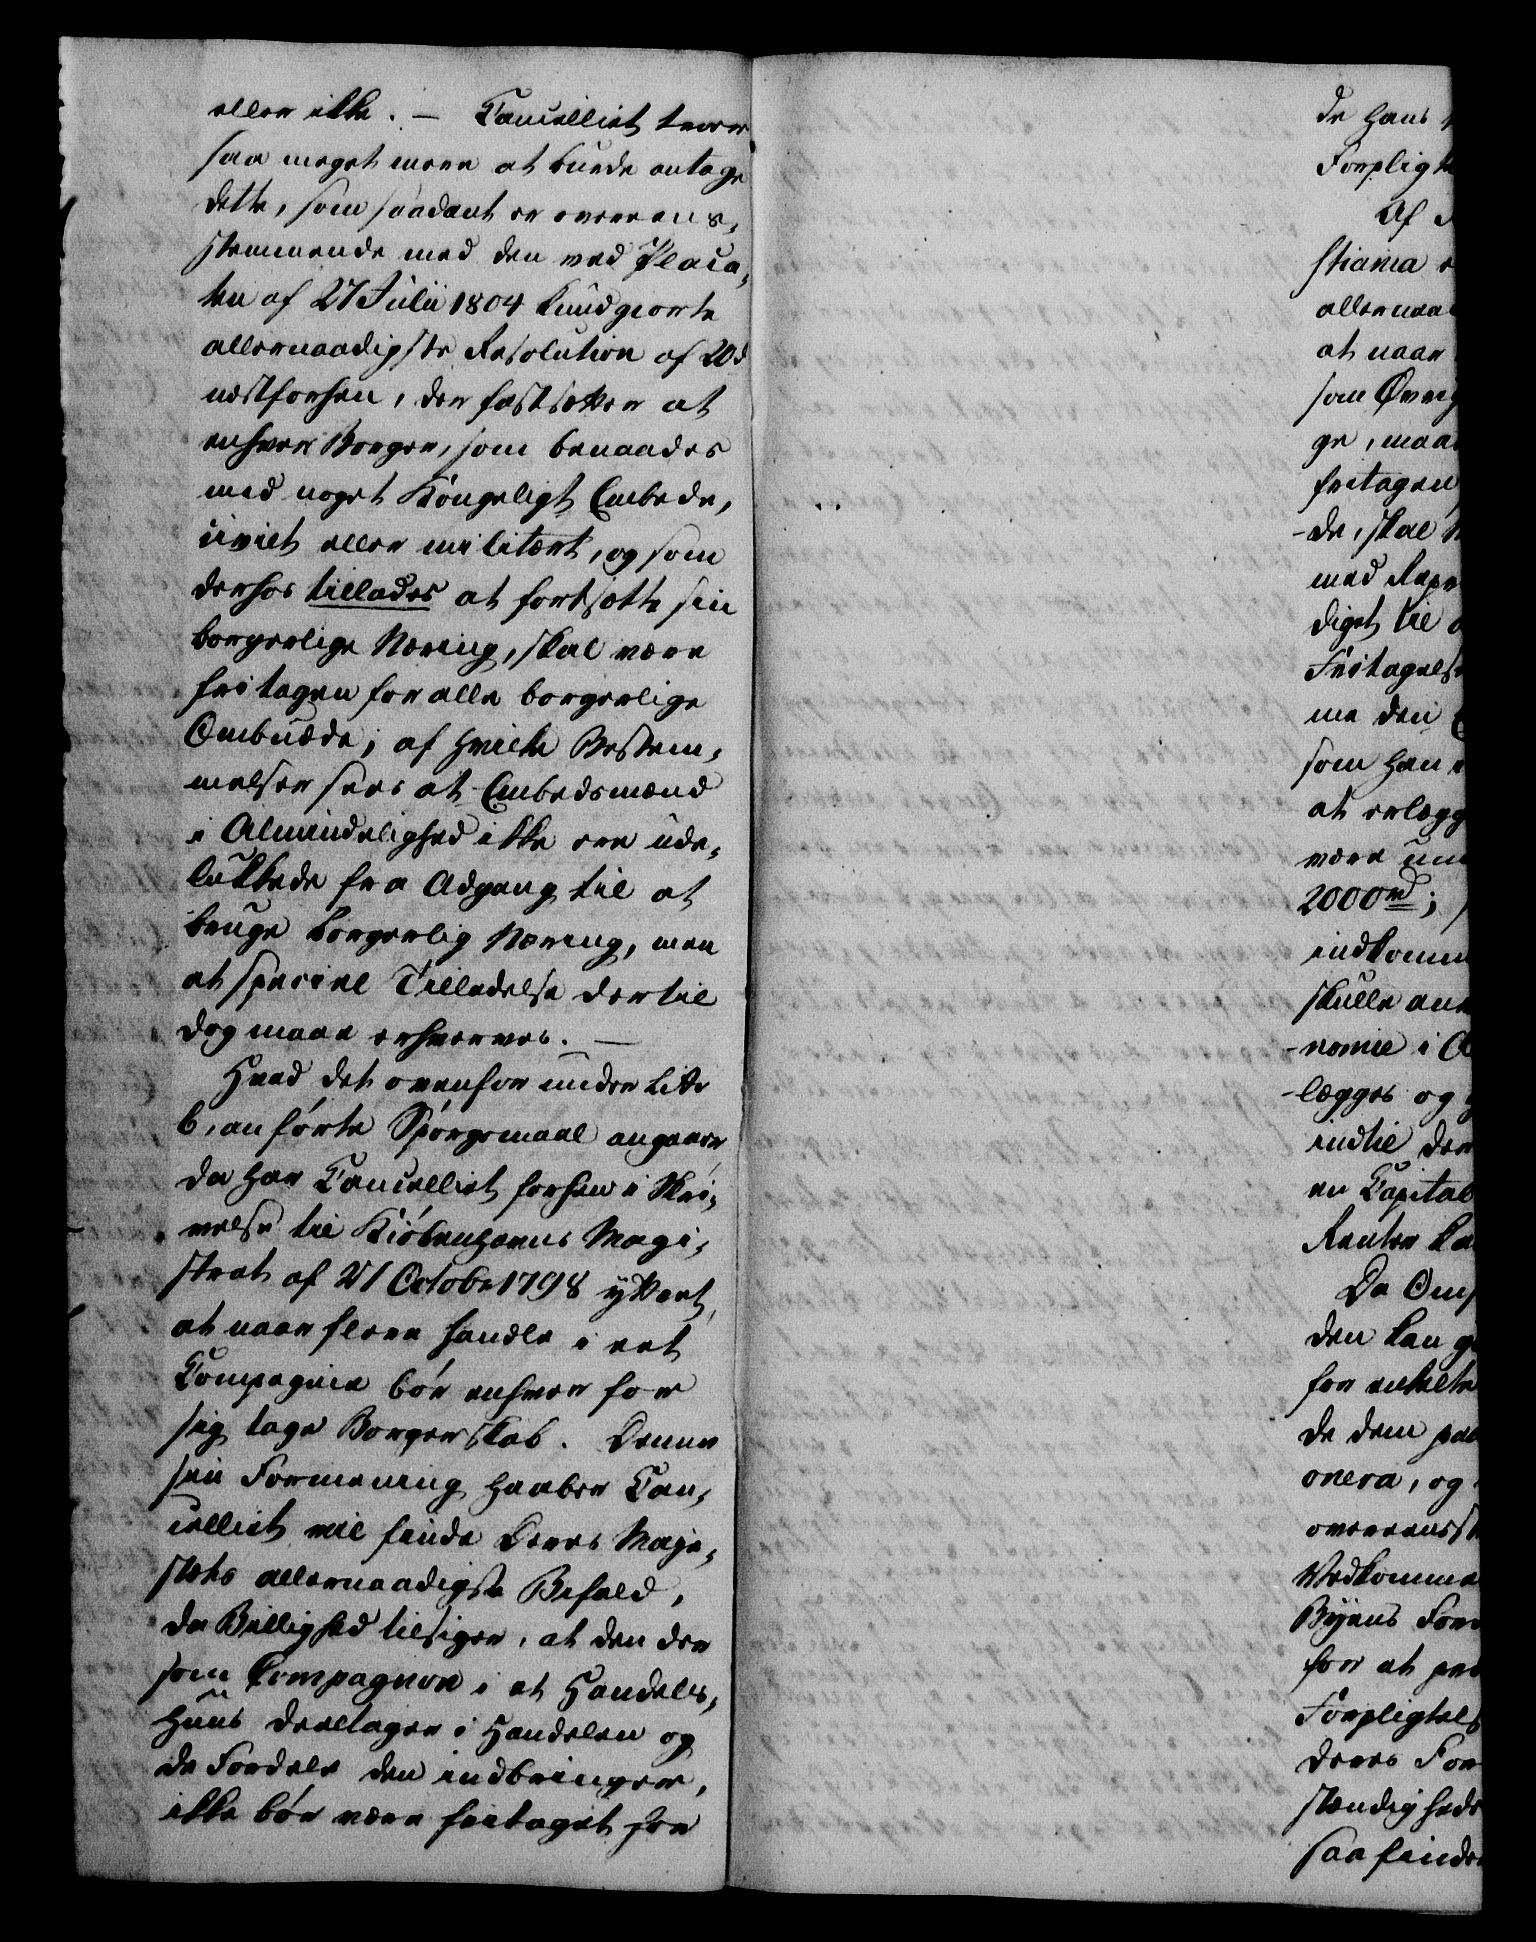 eller ikke. — Cancelliet troer
saa meget mere at burde antage
dette, som saadant er overeens-
stemmende med den ved Placa-
ten af 27 Julii 1804 kundgiorte
allernaadigste Resolution af 20d
næstforhen, der fastsætter at
enhver Borger, som benaades
med noget Kongeligt Embede,
civilt eller militært, og som
derhos tillades at fortsætte sin
borgerlige Næring, skal være
fritagen for alle borgerlige
Ombude; af hvilke Bestem-
melser sees at Embedsmænd
i Almindelighed ikke ere ude-
lukkede fra Adgang til at
bruge borgerlig Næring, men
at speciel Tilladelse dertil
dog maae erhverves. —
Hvad det ovenfor under Litr
b, anførte Spørgsmaal angaaer
da har Cancelliet forhen i Skri-
velse til Kiøbenhavns Magi-
strat af 21 Octobr 1798 yttret,
at naar flere handle i eet
Compagnie bør enhver for
sig tage Borgerskab. Denne
sin Formening haaber Can-
celliet vil finde Deres Maje-
stæts allernaadigste Bifald,
da Billighed tilsiger, at den der
som Compagnon i et Handels-
Huus deeltager i Handelen og
de Fordele den indbringer,
ikke bør være fritaget for
de hans
Forpligt
Af
stiania
allernaa
at naar
som Øvrig
ge, maa
fritagen
-de, skal
med Repr
diget til
Fritagels
me den
som han
at erlægg
være un
2000rd;
indkomm
skulle an
-nomie i
-lægges og
indtil der
en Capital
Renter ka
Da Om
den kan g
for enkelte
de dem paa
onera, og
overeensst
Vedkomme
Byens For
for at
Forpligtels
deres For
stændigheds
saa finde